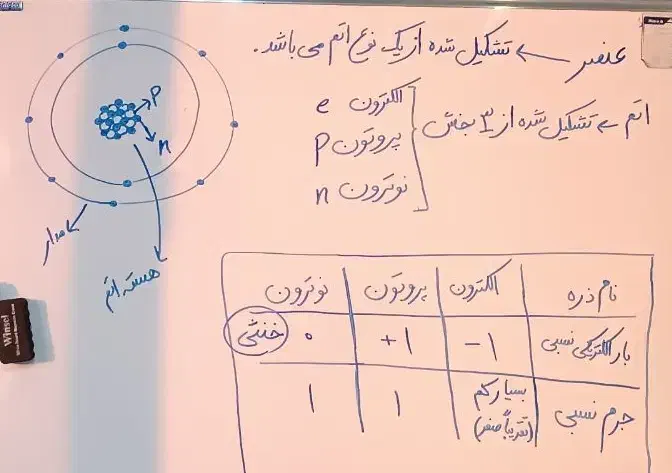 عنصر ← تشکیل شده از یک نوع اتم می باشد.
اتم ← تشکیل شده از ۳ بخش
الکترون e
پروتون p
نوترون n
p
n
مدار
هسته اتم
نام ذره الکترون پروتون نوترون
بار الکتریکی نسبی -1 +1 0 خنثی
جرم نسبی بسیار کم (تقریباً صفر) 1 1
Winsel